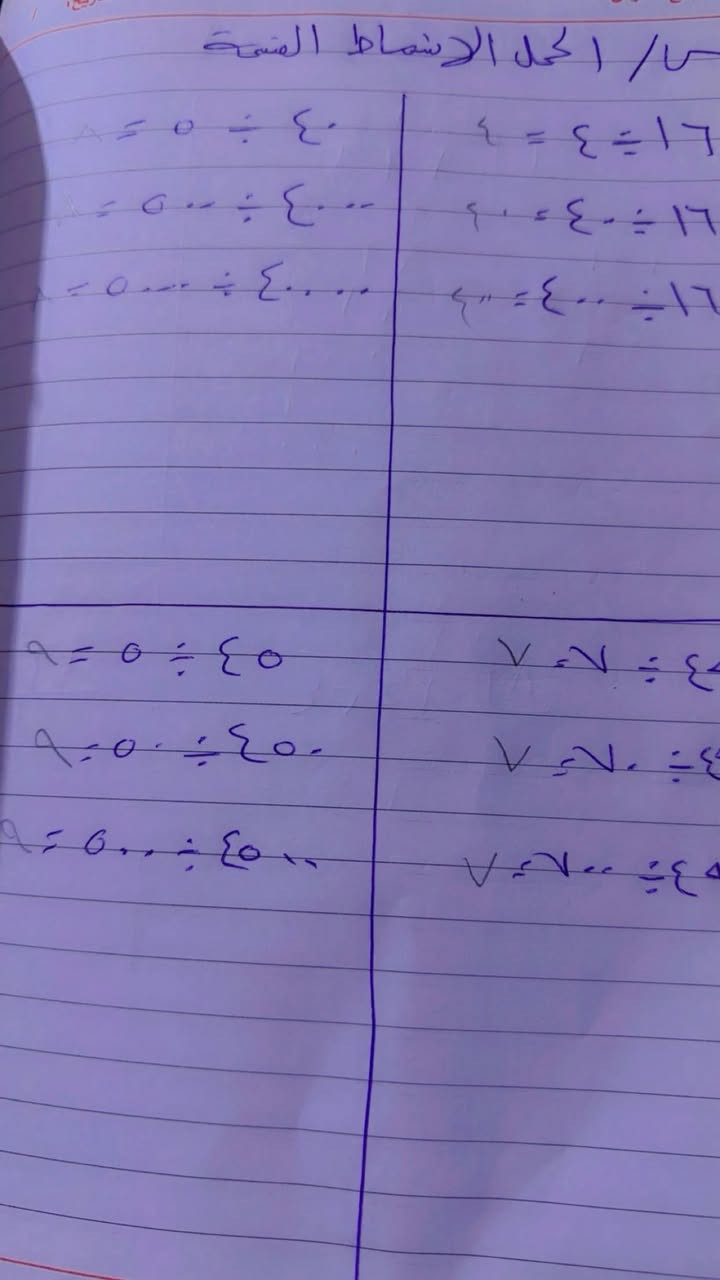 س/ اكمل الانماط القسمة
١٦ ÷ ٤ = ٤
١٦ ÷ ٤٠ = ٤٠
١٦ ÷ ٤٠٠ = ٤٠٠
٤٠ ÷ ٥ = ٨
٤٠٠٠ ÷ ٥٠٠ = ٨
٤٠٠٠٠ ÷ ٥٠٠٠ = ٨
٤ ÷ ٧ = ٧
٤ ÷ ٧٠ = ٧
٤ ÷ ٧٠٠ = ٧
٤٥ ÷ ٥ = ٩
٤٥٠ ÷ ٥٠ = ٩
٤٥٠٠ ÷ ٥٠٠ = ٩